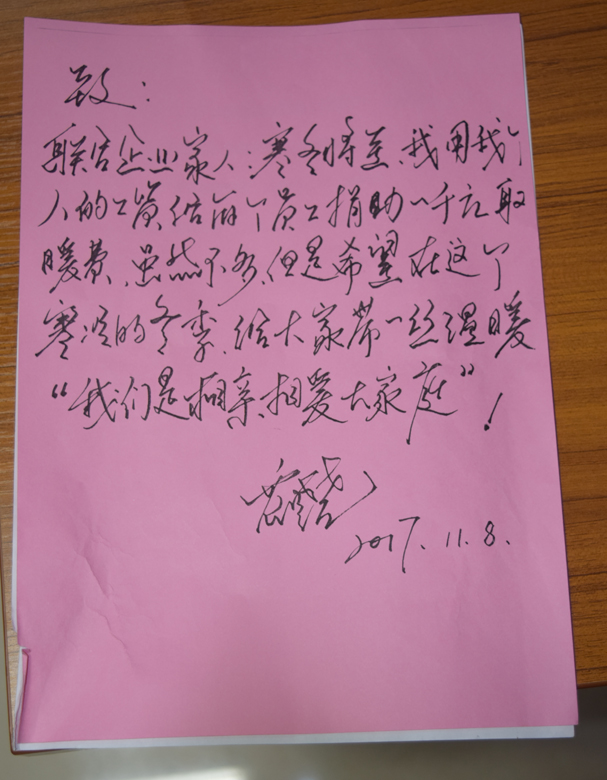 致:
联合企业家人:寒冬将至,我用我个
人的工资给每个员工捐助一千元取
暖费,虽然不多,但是希望在这个
寒冷的冬季,给大家带一丝温暖
“我们是相亲、相爱大家庭”!
2017.11.8.